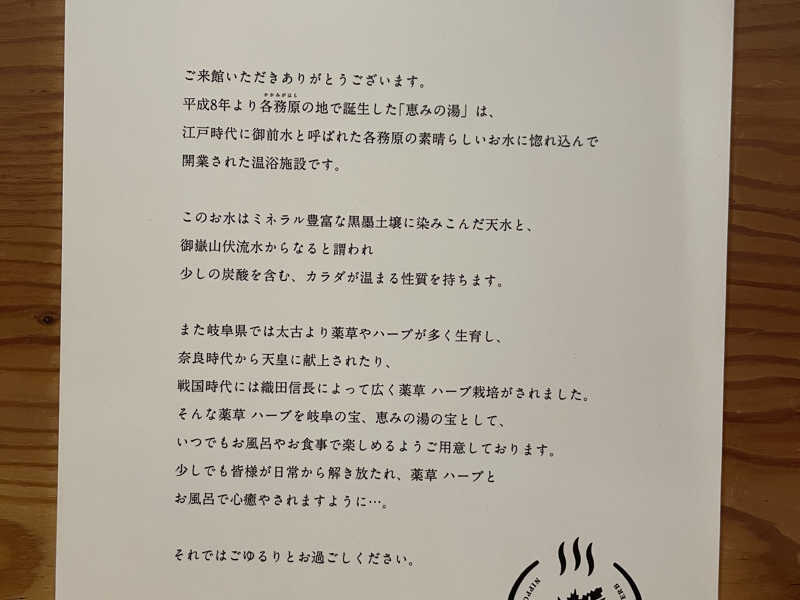 ご来館いただきありがとうございます。
かかみがはら
平成8年より各務原の地で誕生した「恵みの湯」は、
江戸時代に御前水と呼ばれた各務原の素晴らしいお水に惚れ込んで
開業された温浴施設です。
このお水はミネラル豊富な黒墨土壌に染みこんだ天水と、
御嶽山伏流水からなると謂われ
少しの炭酸を含む、カラダが温まる性質を持ちます。
また岐阜県では太古より薬草やハーブが多く生育し、
奈良時代から天皇に献上されたり、
戦国時代には織田信長によって広く薬草 ハーブ栽培がされました。
そんな薬草 ハーブを岐阜の宝、恵みの湯の宝として、
いつでもお風呂やお食事で楽しめるようご用意しております。
少しでも皆様が日常から解き放たれ、薬草 ハーブと
お風呂で心癒やされますように…。
それではごゆるりとお過ごしください。